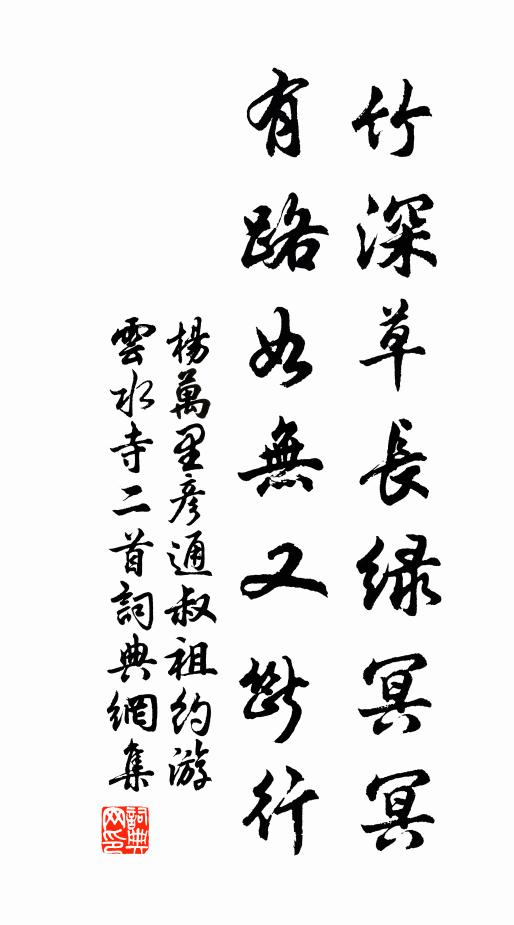 竹深草長緑冥冥
有路如無又斷行
楊萬里彦通叔祖約游
雲水寺二首詞典網集
詞典網印